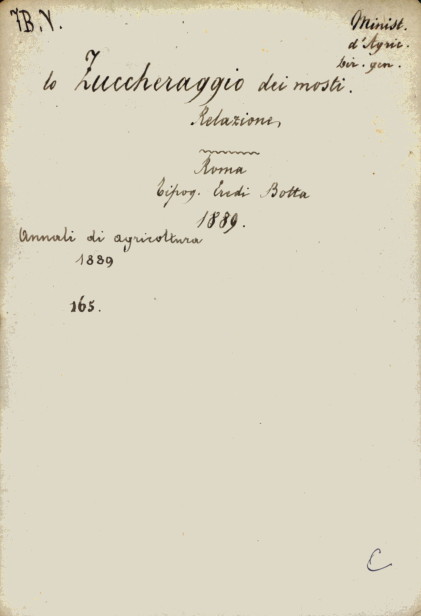 7B.V.
Minist.
d'Agric.
Dir. gen.
lo Zuccheraggio dei mosti.
Relazione,
Roma
Tipog. Eredi Botta
1889.
Annali di agricoltura
1889
165.
C